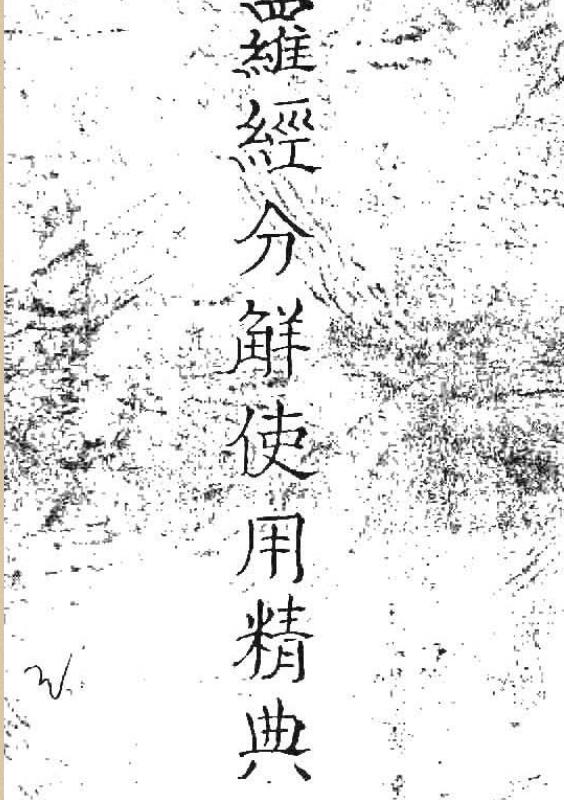 羅經分觧使用精典